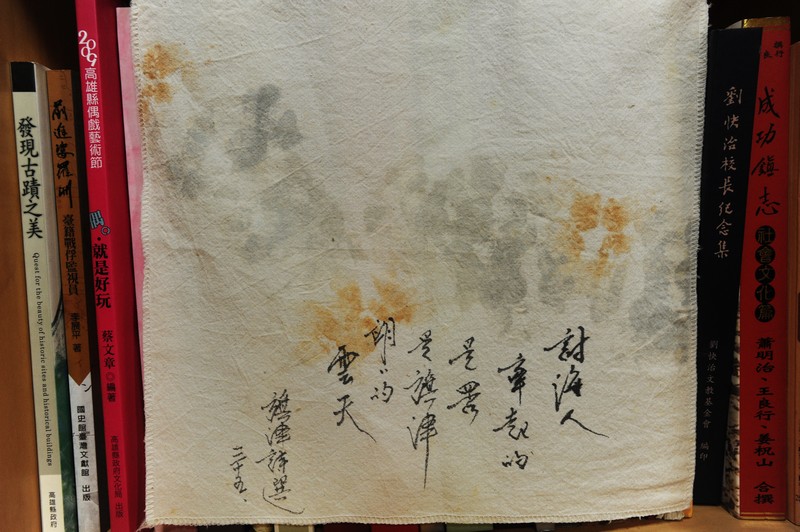 發現古蹟之美
Quest for the beauty of historic sites and historical buildings
高雄縣政府
前進婆羅洲
臺籍戰俘監視員
李展平 著
國史館臺灣文獻館 出版
2009高雄縣偶戲藝術節
偶の・就是好玩
蔡文章◎編著
高雄縣政府文化局 出版
討海人
牽起的
是罟
是旗津
朗々的
雲天
旗津詩選
三十五.
劉快治校長紀念集
劉快治文教基金會 編印
成功鎮志
社會文化篇
蕭明治、王良行、姜祝山 合撰